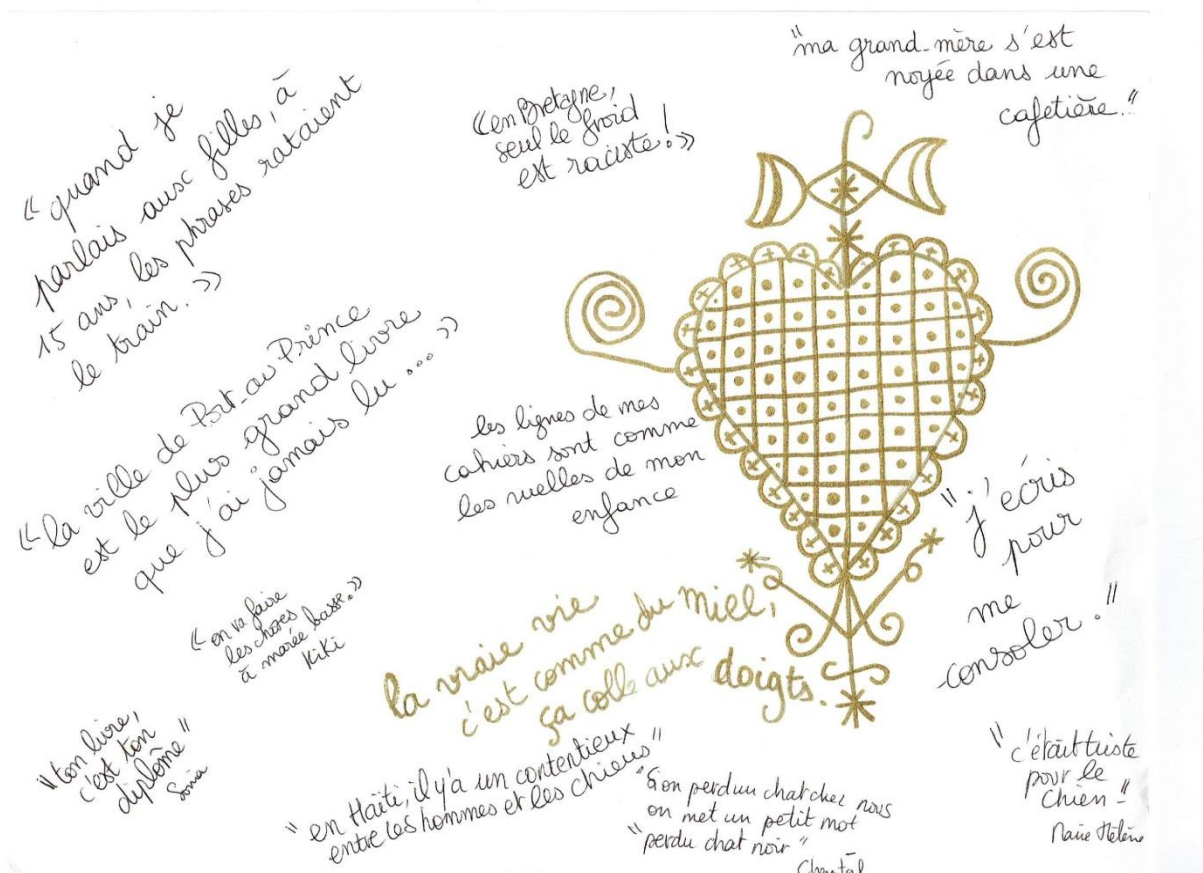 "ma grand-mère s'est
noyée dans une
cafetière."
«en Bretagne,
seul le froid
est raciste!»
« quand je
parlais aux filles, à
15 ans, les phrases rataient
le train. »
« la ville de Port-au-Prince
est le plus grand livre
que j'ai jamais lu ... »
les lignes de mes
cahiers sont comme
les ruelles de mon
enfance
"j'écris
pour
me
consoler."
« on va faire
les choses
à marée basse. »
Kiki
la vraie vie
c'est comme du miel,
ça colle aux doigts.
"ton livre,
c'est ton
diplôme"
Sonia
"en Haïti, il y'a un contentieux
entre les hommes et les chiens"
"Si on perd un chat chez nous
on met un petit mot
"perdu chat noir"
Chantal
"c'était triste
pour le
chien"
Marie Hélène